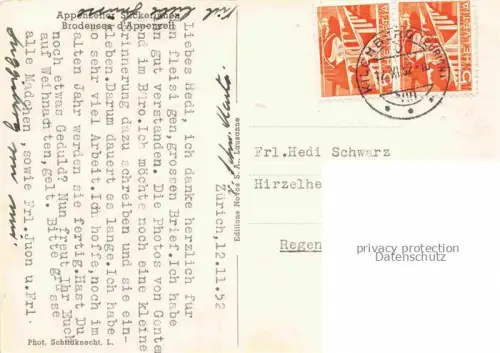 Appenzeller Stickerinnen
Brodeuses d'Appenzell
Zürich, 12.11.52
Liebes Hedi, ich danke herzlich für
en fleisigen, grossen Brief. Ich habe
en gut verstanden. Die Photos von Gonte
nd im Büro. Ich möchte noch eine kleine
rinnerung dazu schreiben und sie ein-
leben. Darum dauert es lange. Ich habe
so sehr viel Arbeit. Ich hoffe, noch im
alten Jahr werden sie fertig. Hast Du
noch etwas Geduld? Nun freut Ihr Euch
auf Weihnachten, gelt. Bitte grüsse
alle Mädchen, sowie Frl. Juon u. Frl.
Phot. Schmidknecht. L.
Editions Novos S. A., Lausanne
HELVETIA
KILCHBERG (ZÜRICH)
Frl. Hedi Schwarz
Hirzelhe
Regen
privacy protection
Datenschutz